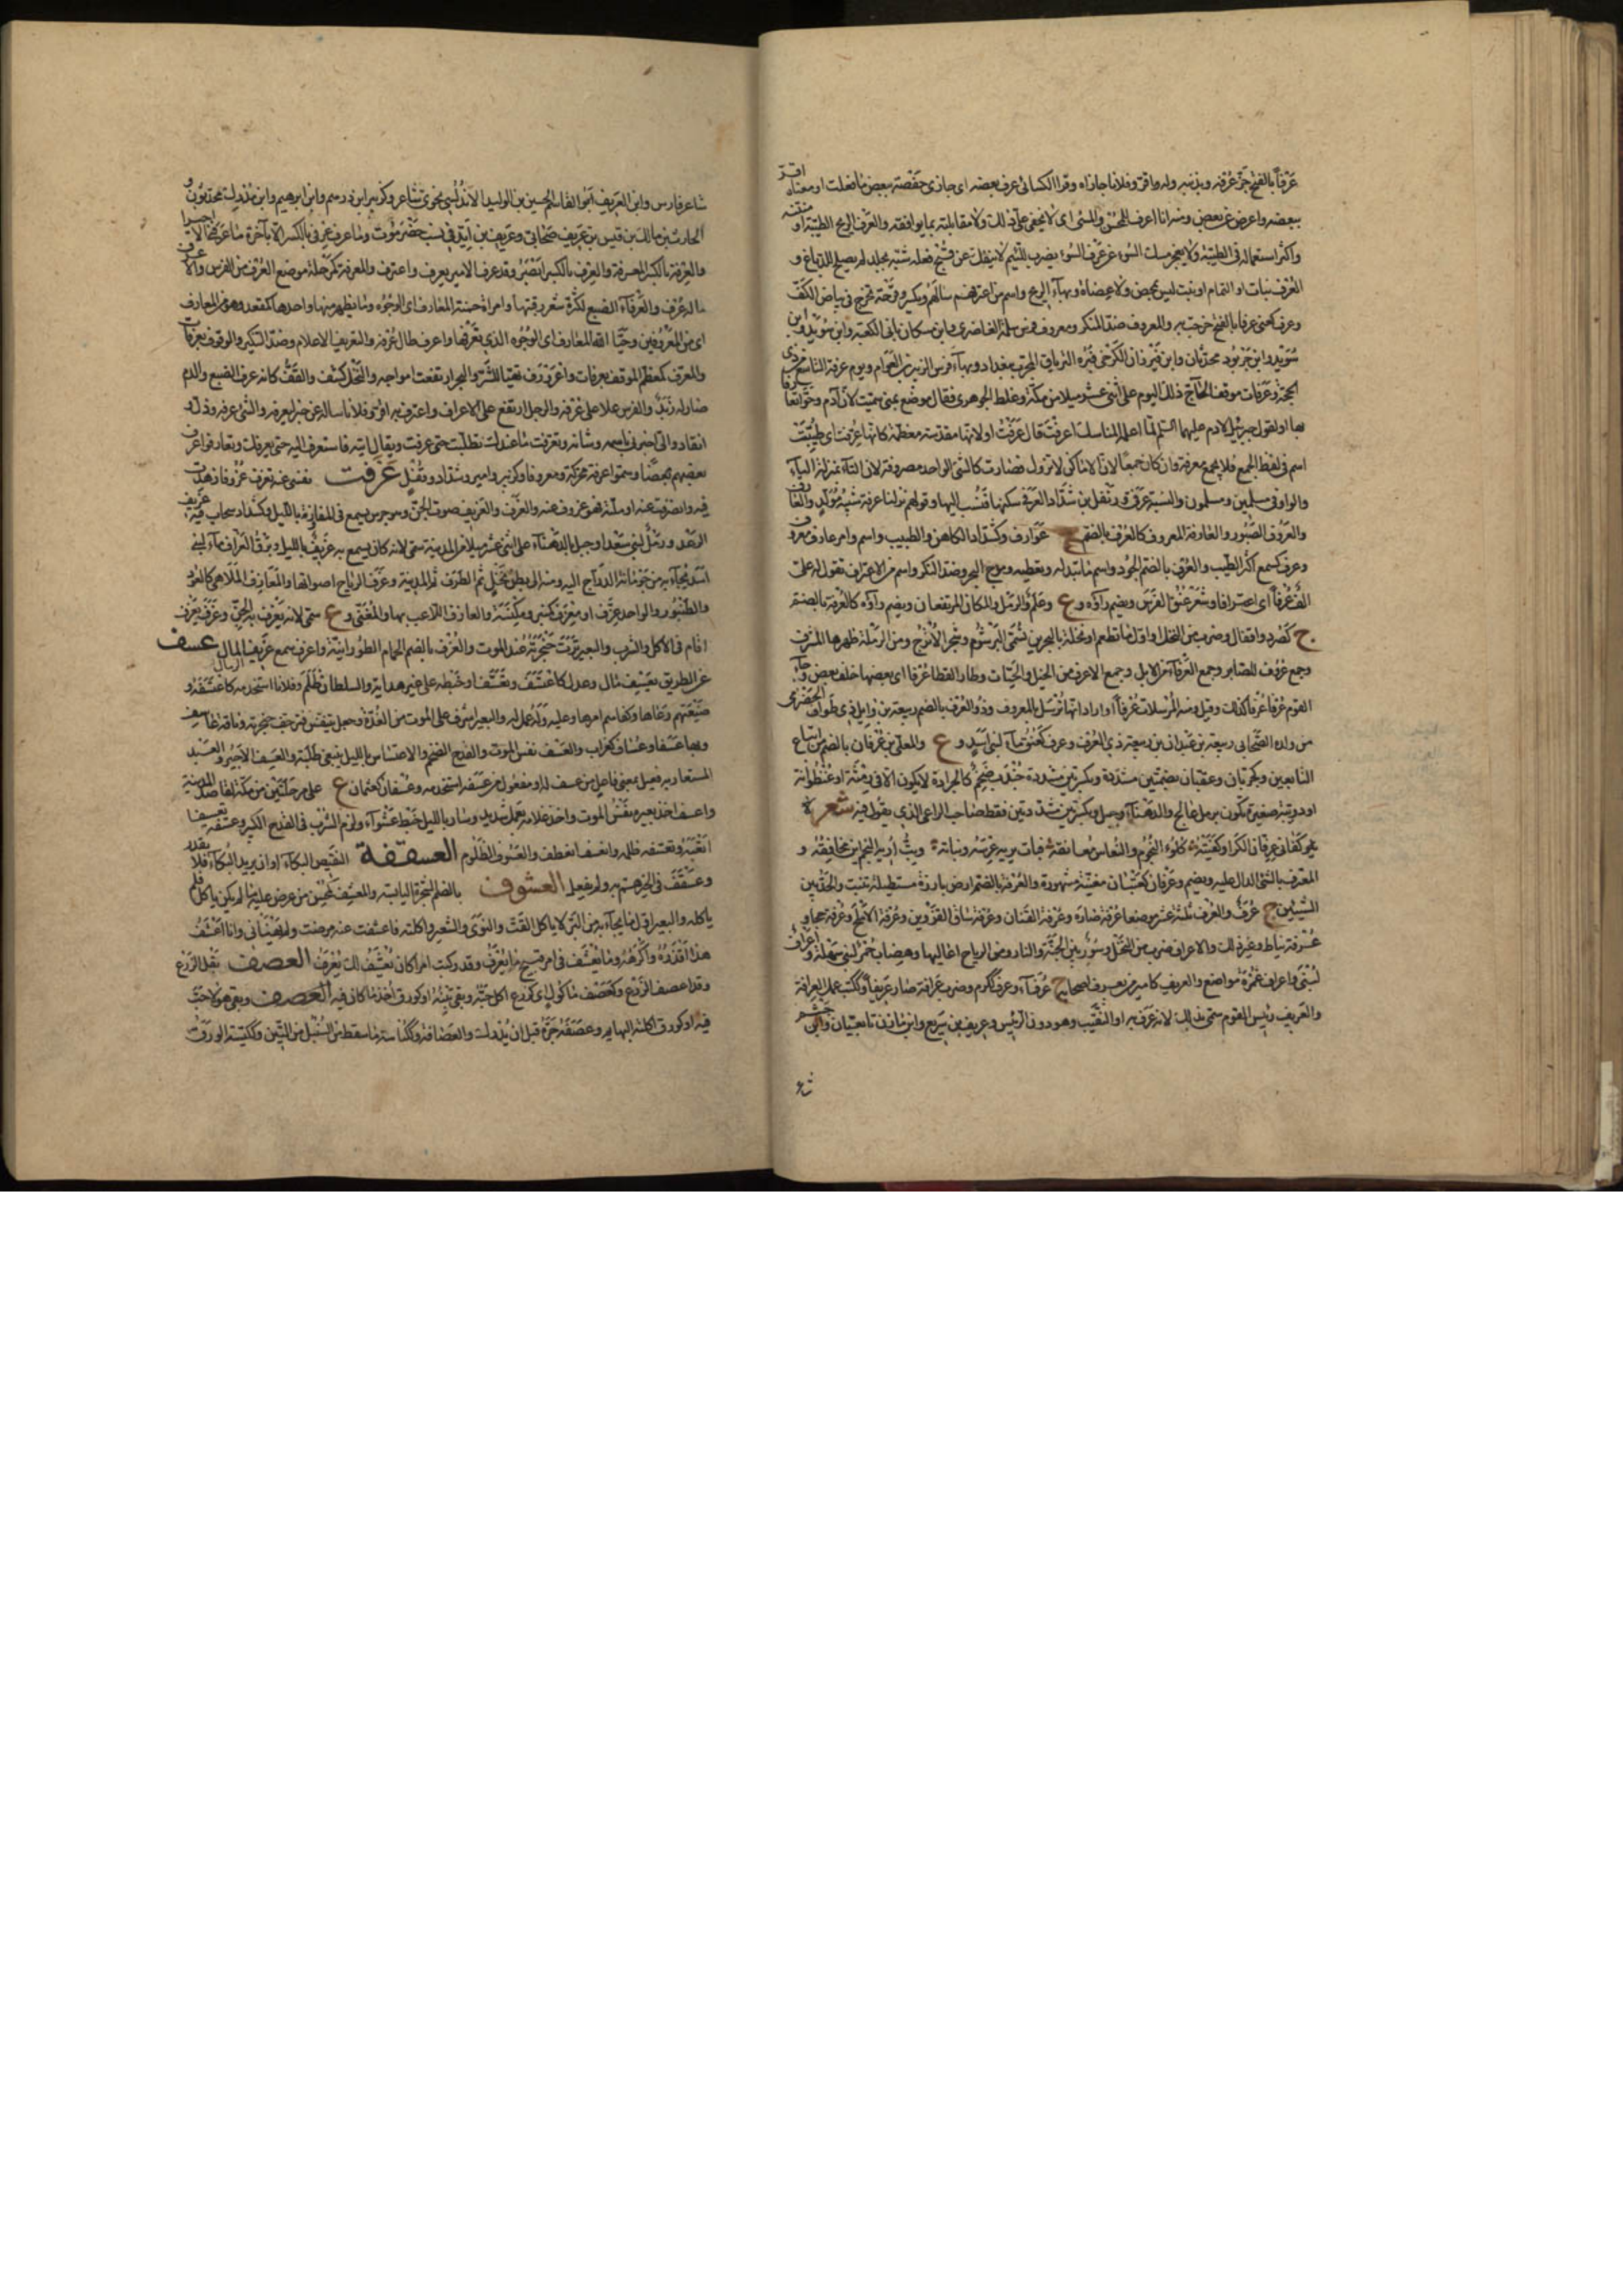 عَرْفاً بالفتح جَزّ عُرْفَه وبذنبه وله اقرّ وفلانا جازاه وقرا الكسائى عرف بعضه اى جازى حَفْصَة ببعض ما فعلت او معناه اقرّ
ببعضه واعرض عن بعض ومنه انا اعرف للمحسن والمسئ اى لا يخفى علىّ ذلك ولا مقابلته بما يوافقه والعَرْف الريح الطيّبة او منتنة
واكثر استعماله فى الطيّبة ولا يعجز مسك السَوء عن عَرْف السَوء يضرب للئيم لا ينفك عن قُبْح فعله شبّه بجلد لم يصلح للدباغ و
العَرْف نبات او الثمام او نبت ليس بحمض ولا عضاه وبهاء الريح واسم من اعترفهم سالهم ويكسر وقرحة تخرج فى بياض الكفّ
وعرف كعنى عرفا بالفتح خرجت به والمعروف ضدّ المنكر ومعروف بن مسكان بانى الكعبة وابن سُويد وابن
جَرَّبُوذ محدّثان وابن فَيْرُوزان الكَرْخى قبره الترياق المجرّب ببغداد وبهاء فرس الزبير بن العوّام ويوم عرفة التاسع من ذى
الحجّة وعَرَفات موقف الحاجّ ذلك اليوم على اثنى عشر ميلا من مكّة وغلط الجوهرى فقال موضع بمنى سمّيت لانّ آدم وحَوّا تعارفا
بها او لقول جبرئيل لابرهيم عليهما السّلم لمّا اعلمه المناسك أعرفتَ قال عرفت او لانها مقدّسة معظّمة كانّها عُرِفت اى طُيِّبَت
اسم فى لفظ الجمع فلا يجمع معرفة وان كان جمعا لانّ الاماكن لا تزول فصارت كالشئ الواحد مصروفة لان التآء بمنزلة اليآء
والواو فى مسلمين ومسلمون والنسبة عَرَفىّ وزَنْفَل بن شدّاد العَرَفى سكنها فنُسب اليها وقولهم نزلنا عرفة شبيه مُوَلَّد والعارف
والعَرُوف الصَّبُور والعارفة المعروف كالعُرْف بالضم ج عَوارف وكشدّاد الكاهن والطبيب واسم وامر عارف معروف
وعرف كسمع اكثر الطيب والعُرْف بالضمّ الجُود واسم ما تبذله وتعطيه وموج البحر وضدّ النكر واسم من الاعتراف تقول له علىّ
الفٌ عُرْفاً اى اعترافا وشَعَر عُنُق الفَرَس ويضم راؤه و ع وعَلَم والرمل والمكان المرتفعان ويضم راؤه كالعُرْفة بالضم
ج كصُرَد واقفال وضرب من النخل او اوّل ما تطعم او نخلة بالبحرين تسمّى البُرْشُوم وشجر الاُتْرُجّ ومن الرملة ظهرها المشرف
وجمع عَرُوف للصابر وجمع العَرْفآء من الابل وجمع الاعرف من الخيل والحيّات وطار القطا عُرْفا اى بعضها خلف بعض وجآء
القوم عُرْفا عُرْفا كذلك وقيل ومنه المرسلات عُرْفاً او اراد انها تُرْسَل بالمعروف وذو العُرْف بالضم ربيعة بن وايل ذى طوّاف الحَضْرَمى
من ولده الصّحابى ربيعة بن عَيْدان بن ربيعة ذى العُرْف وعرف كعُنُق مآء لبنى اسد و ع والمعلّى بن عُرْفان بالضم من اتباع
التابعين وكجُربّان وعفتّان بضمّتين مشدّدة وبكسرتين مشددة جُنْدَب ضَخْم كالجرادة لا يكون الا فى رمثة او عُنْظُوانة
او دويبة صغيرة تكون برمل عالج والدهناء وجبل وبكسرتين مشدّدتين فقط صاحب الراعى الذى يقول فيه شعر
كفانى عِرِفّان الكرا وكفيته ۞ كُلُوء النجوم والنعاس معانقه ۞ فبات يريه عرسه وبناته ۞ وبتّ أريه النجم اين مخافقه و
المعرف بالشئ الدالّ عليه ويضم وعُرْفان كعُثْمان مغنّية مشهورة والعُرْفة بالضم ارض بارزة مستطيلة تنبت والحدّ بين
الشيئين ج عُرَف والعُرَف ثلثة عشر موضعا عُرْفة صارة وعُرْفة القَنان وعُرْفة ساق الفَرْوين وعُرْفة الاملح وعُرْفة حماو
عُرْفة نباط وغير ذلك والاعراف ضرب من النخل وسُور بين الجنّة والنار ومن الرياح اعاليها وهضاب حُمْر لبنى سَهْلة واعراف
لُبْنَى واعراف غَمْرة مواضع والعريف كامير من يعرف اصحابه ج عُرَفآء وعرف كَكَرُم وضرب عَرافة صار عريفا وككتب عمل العرافة
والعريف رئيس القوم سمّى بذلك لانه عرف به او النقيب وهو دون الرئيس وعريف بن سريع وابن مازن تابعيّان وابن جُشَم
شاعر فارس وابن العريف ابو القاسم الحسين بن الوليد الاندلسى نحوى شاعر وكزبير ابن درهم وابن ابرهيم وابن مُدْرِك محدّثون و
الحارث بن مالك بن قيس بن عُرَيف صحابى وعُرَيف بن آبَد فى نسب حَضْرَموت وما عرف عِرفى بالكسر الّا بآخرة ما عرفنى الّا اخيرا
والعِرْفة بالكسر المعرفة والعِرْف بالكسر الصَّبْر وقد عرف للامر يعرف واعترف والمعرفة كمرحلة موضع العُرْف من الفرس والاعرف
ماله عُرْف والعَرْفآء الضبع لكثرة شعر رقبتها وامراة حسنة المعارف اى الوجوه وما يظهر منها واحدها كمقعد وهو من المعارف
اى من المعروفين وحيّا الله المعارف اى الوجوه الذى تعرفها واعرف طال عُرْفه والتعريف الاعلام وضدّ التنكير والوقوف بعرفات
والمعرّف كمعظّم الموقف بعرفات واعرورف تهيّا للشرّ والبحر ارتفعت امواجه والنخل كثف والتفّ كانه عرف الضبع والدم
صار له زَبَد والفرس علا على عُرْفه والرجل ارتفع على الاعراف واعترف به اقرّ وفلانا ساله عن خبر ليعرفه والشئ عرفه وذلّ و
انقاد والىّ اخبرنى باسمه وشانه وتعرّفت ما عندك تطلّبت حتى عرفت ويقال ايته فاستعرف اليه حتى يعرفك وتعارفوا عرف
بعضهم بعضا وسمّوا عرفة محرّكة ومعروفا وكزبير وامير وشدّاد وقُفْل عَزَفت نفسى عنه تعزف عزوفا زهدت
فيه وانصرفت عنه او ملّته فهو عزوف عنه والعَزْف والعَزيف صوت الجنّ وهو جرس يسمع فى المفازة بالليل وكشدّاد سحاب فيه عزيف
الرَّعْد ورمل لبنى سَعْد او جبل بالدهنآء على اثنى عشر ميلا من المدينة سمّى لانه كان يسمع به عزيف بالليل وبرق العزّاف مآء لبنى
اسد يُجآء به من حَوْمانة الدرّاج اليه ومنه الى بطن نَخْل ثم الطَّرَف ثم المدينة وعَزْف الرياح اصواتها والمعازف الملاهى كالعود
والطُّنْبُور والواحد عَزْف او مِعْزَف كمنبر ومِكْنَسة والعازف اللاعب بها والمغنّى و ع سمّى لانه تعزف به الجنّ وعزف يعزف
اقام فى الاكل والشرب والبعير نَزَت حَنْجَرَته عند الموت والعُزْف بالضم الحمام الطُورانيّة واعزف سمع عزيف الرمال عسف
عن الطريق يعسف مال وعدل كاعتسف وتعسّف او خبطه على غير هداية والسلطان ظلم وفلانا استخدمه كاعتسفه و
ضيعتهم رعاها وكفاهم امرها وعليه وله عمل له والبعير اشرف على الموت من الغُدّة وجعل يتنفس فترجف حنجرته وناقة عاسف
وبها عسف وعُساف كغراب والعَسْف نفس الموت والقدح الضخم والاعتساس بالليل يبغى طلبة والعسيف الاجير والعبد
المستعان به فعيل بمعنى فاعل من عسف له او مفعول من عسفه استخدمه وعُسْفان كعثمان ع على مرحلتين من مكّة لقاصد المدينة
واعسف اخذ بعيره نَفَس الموت واخذ غلامه بعمل شديد وسار بالليل خبط عَشْواء ولزم الشرب فى القدح الكبير وعسّفه تعسيفا
اتعبه وتعسّفه ظلمه وانعسف انعطف والعَسُوف الظَّلُوم العسقفة النقيض البكآء او ان يريد البكآء فلا يقدر
وعَسْقَف فى الخير همّ به ولم يفعله العشوف بالضم الشجرة اليابسة والمعشف كمحسن من عرض عليه ما لم يكن ياكل فلم
ياكله والبعير اوّل ما يجآء به من البرّ لا ياكل القَتّ والنَّوَى والشعير واكلته فاعشفت عنه مرضت ولم يَهْنَأنى وانا اعشف
هذا اقذره واكرهه وما يُعْشَف لى امر قبيح ما يُعْرَف وقد ركبت امرا ما كان يُعْشَف لك يُعْرَف العصف بقل الزرع
وقد اعصف الزرع وكعصف ماكول اى كزرع اكل حبّه وبقى تبنه او كورق اخذ ما كان فيه وبقى هو لا حبّ
فيه او كورق اكلته البهايم وعصفه جَزّه قبل ان يُدْرِك والعُصافة ككُناسة ما سقط من السُّنْبُل من التبن وككنيسة الورق